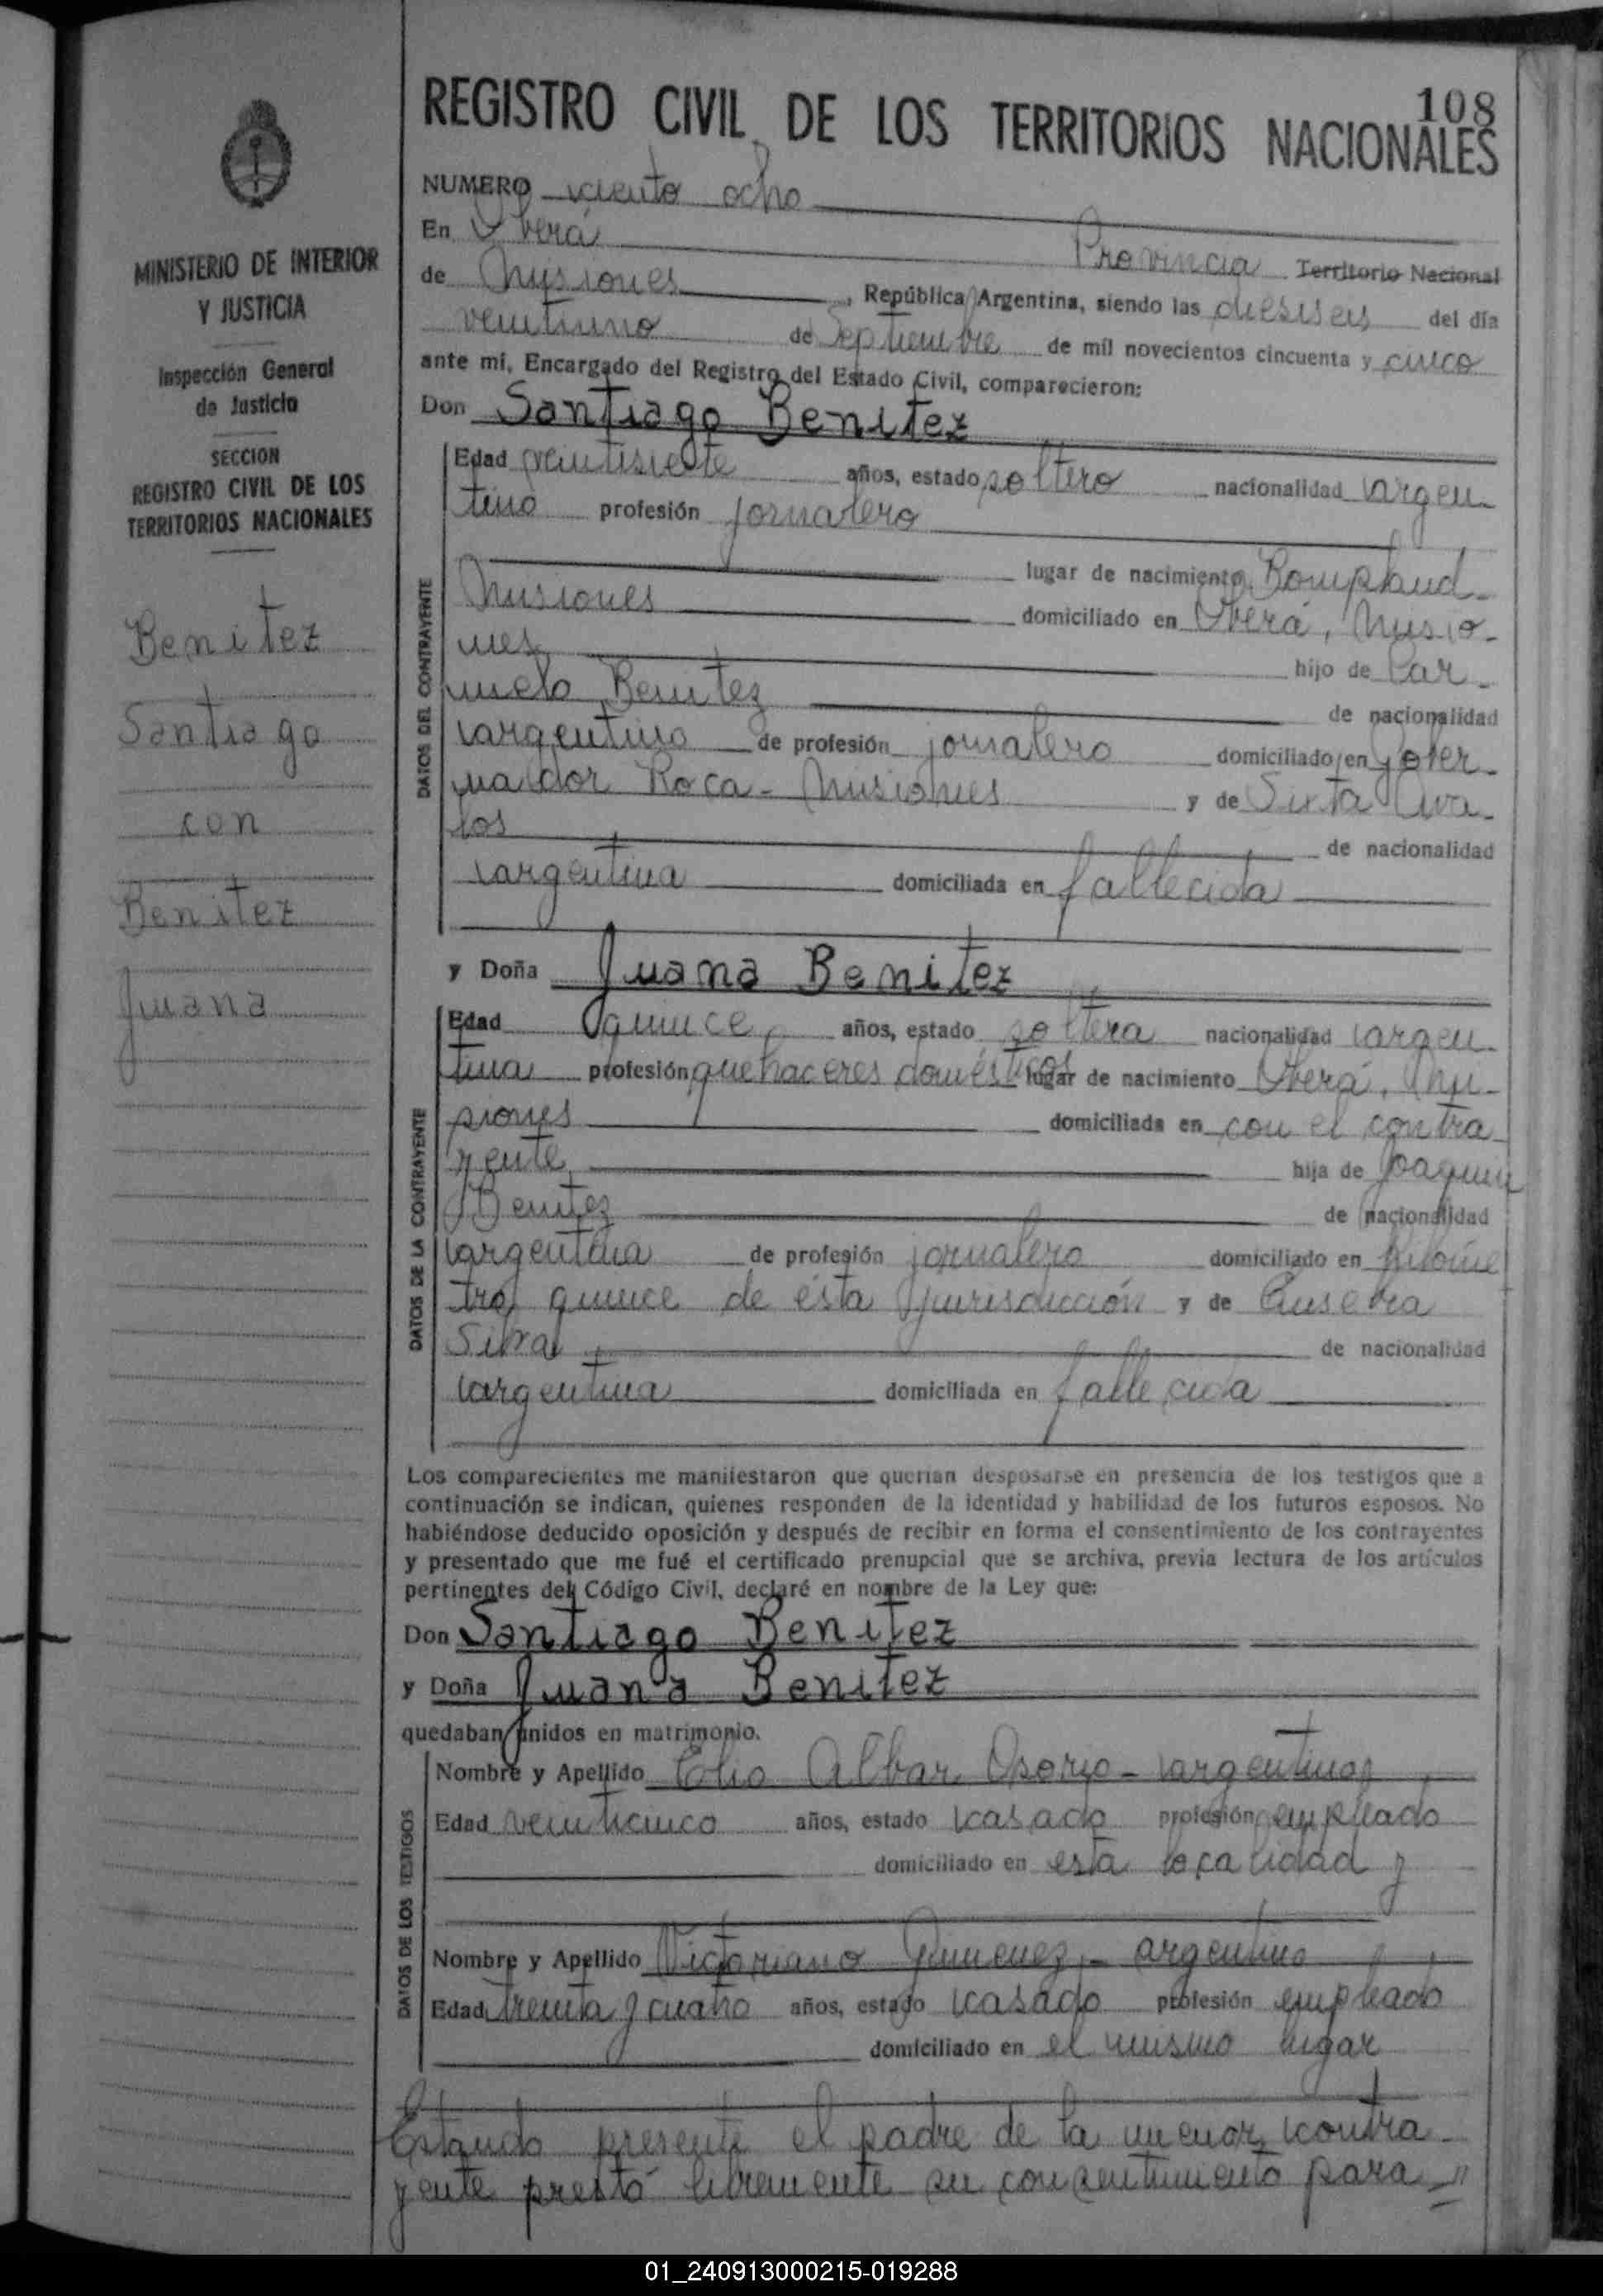 108
REGISTRO CIVIL DE LOS TERRITORIOS NACIONALES
NUMERO ciento ocho
En Oberá
Provincia Territorio Nacional
de Misiones, República Argentina, siendo las dieciseis del día
veintiuno de Septiembre de mil novecientos cincuenta y cinco
ante mi, Encargado del Registro del Estado Civil, comparecieron:
Don Santiago Benitez
Edad veintisiete años, estado soltero nacionalidad argen-
tino profesión jornalero
lugar de nacimiento Bompland-
Misiones domiciliado en Oberá, Misio-
nes hijo de Car-
melo Benitez de nacionalidad
argentino de profesión jornalero domiciliado en Gober-
nador Roca - Misiones y de Sixta Ava-
los de nacionalidad
argentina domiciliada en fallecida
y Doña Juana Benitez
Edad quince años, estado soltera nacionalidad argen-
tina profesión quehaceres domésticos lugar de nacimiento Oberá, Mi-
siones domiciliada en con el contra-
yente hija de Joaquin
Benitez de nacionalidad
argentina de profesión jornalero domiciliado en kilóme
tro quince de ésta jurisdicción y de Eusebia
Silva de nacionalidad
argentina domiciliada en fallecida
DATOS DEL CONTRAYENTE
DATOS DE LA CONTRAYENTE
Los comparecientes me manifestaron que querían desposarse en presencia de los testigos que a
continuación se indican, quienes responden de la identidad y habilidad de los futuros esposos. No
habiéndose deducido oposición y después de recibir en forma el consentimiento de los contrayentes
y presentado que me fué el certificado prenupcial que se archiva, previa lectura de los artículos
pertinentes del Código Civil, declaré en nombre de la Ley que:
Don Santiago Benitez
y Doña Juana Benitez
quedaban unidos en matrimonio.
Nombre y Apellido Elio Albar Osorio - argentino
Edad veinticinco años, estado casado profesión empleado
domiciliado en esta localidad y
Nombre y Apellido Victoriano Gimenez - argentino
Edad treinta y cuatro años, estado casado profesión empleado
domiciliado en el mismo lugar
DATOS DE LOS TESTIGOS
Estando presente el padre de la menor contra-
yente prestó libremente su consentimiento para = "
MINISTERIO DE INTERIOR
Y JUSTICIA
Inspección General
de Justicia
SECCION
REGISTRO CIVIL DE LOS
TERRITORIOS NACIONALES
Benitez
Santiago
con
Benitez
Juana
01_240913000215-019288